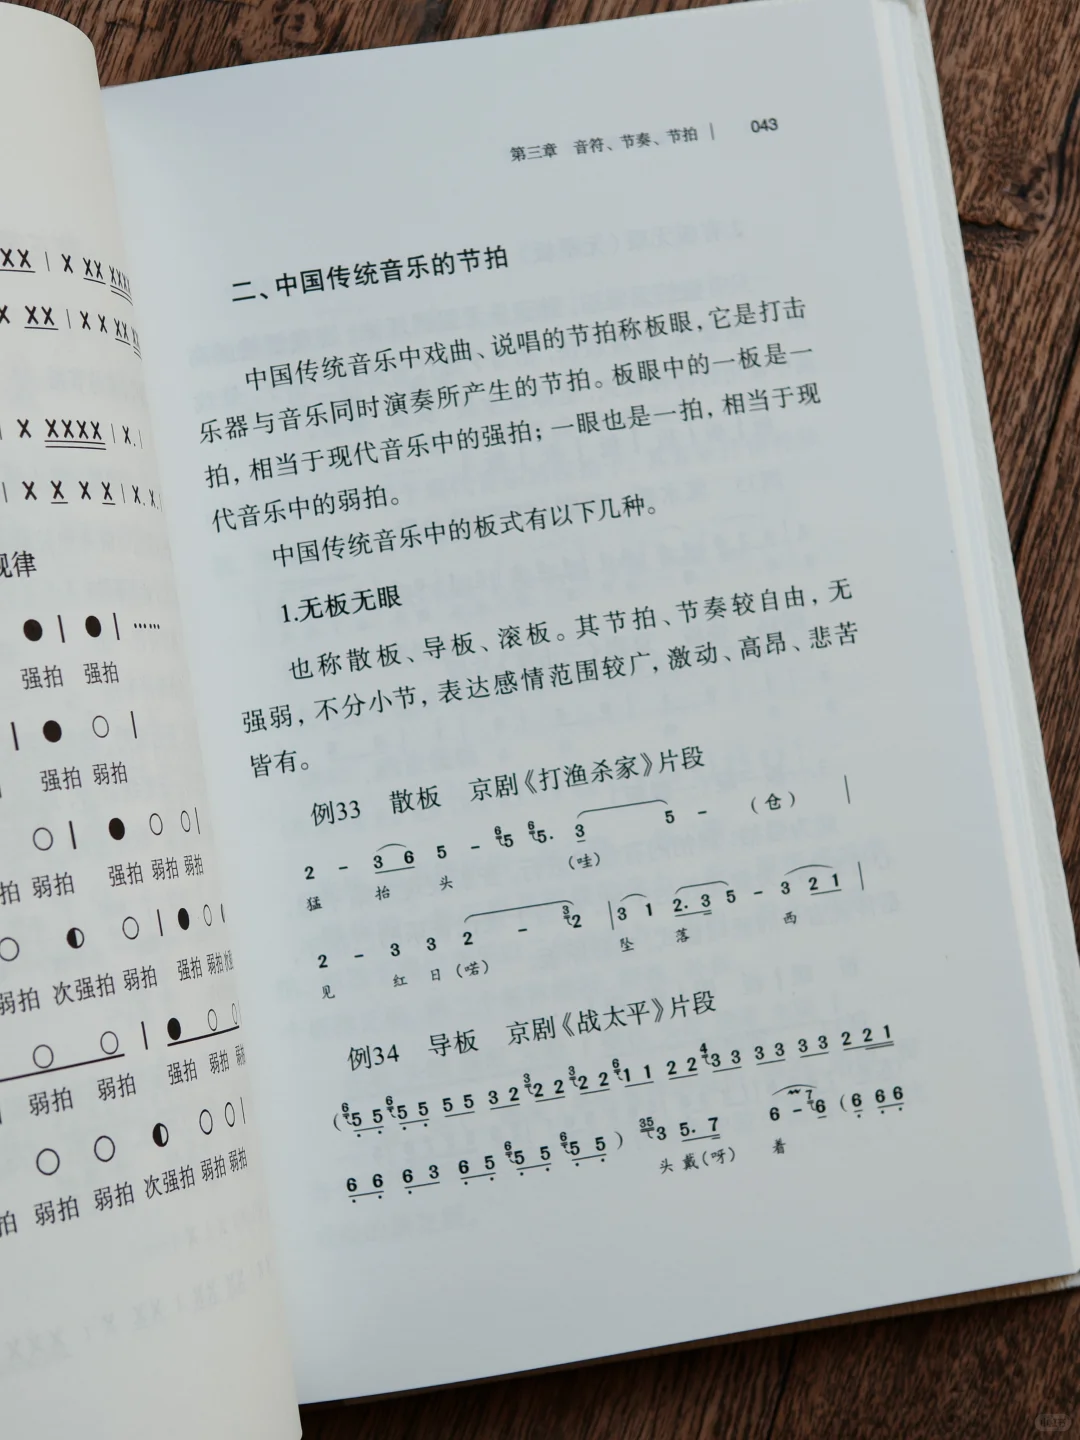 XX | X XX XXXX
X XX | X X XX XX
X XXXX | X. |
| X X X X | X. X.
规律
● | ● | ……
强拍 强拍
| ● ○ |
强拍 弱拍
○ | ● ○ ○ |
拍 弱拍 强拍 弱拍 弱拍
○ ◐ ○ | ● ○
弱拍 次强拍 弱拍 强拍 弱拍
○ ○ | ● ○ ○
弱拍 弱拍 强拍 弱拍 弱拍
○ ○ ◐ ○ ○ |
拍 弱拍 弱拍 次强拍 弱拍 弱拍
第三章 音符、节奏、节拍 | 043
二、中国传统音乐的节拍
中国传统音乐中戏曲、说唱的节拍称板眼，它是打击
乐器与音乐同时演奏所产生的节拍。板眼中的一板是一
拍，相当于现代音乐中的强拍；一眼也是一拍，相当于现
代音乐中的弱拍。
中国传统音乐中的板式有以下几种。
1.无板无眼
也称散板、导板、滚板。其节拍、节奏较自由，无
强弱，不分小节，表达感情范围较广，激动、高昂、悲苦
皆有。
例33 散板 京剧《打渔杀家》片段
2 – 3 6 5 – 6 5 6 5. 3 5 – （仓） |
猛 抬 头 （哇）
2 – 3 3 2 – 3 2 | 3 1 2. 3 5 – 3 2 1 |
见 红 日（喏） 坠 落 西
例34 导板 京剧《战太平》片段
（6 5 5 6 5 5 5 5 3 2 3 2 2 3 2 2 6 1 1 2 2 4 3 3 3 3 3 3 2 2 1
6 6 6 3 6 5 6 5 5 6 5 5 ） 35 3 5. 7 6 – 7 6 （6 6 6
头 戴（呀） 着